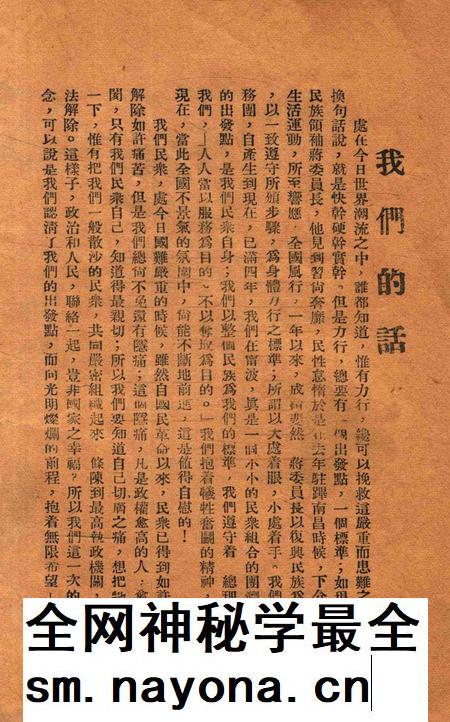 我們的話
處在今日世界潮流之中，誰都知道，惟有力行，纔可以挽救這嚴重而患難之
換句話說，就是快幹硬幹實幹。但是力行，總要有一個出發點，一個標準；如現
民族領袖蔣委員長，他見到習尚奢靡，民性怠惰於是在去年駐蹕南昌時候，下分
生活運動，所至響應，全國風行，一年以來，成績斐然，蔣委員長以復興民族爲
，以一致遵守所頒步驟，爲身體力行之標準；所謂以大處着眼，小處着手。我們
務團，自產生到現在，已滿四年，我們在甯波，眞是一個小小的民衆組合的團
的出發點，是我們民衆自身；我們以整個民族爲我們的標準，我們遵守着 總理
我們，「人人當以服務爲目的，不以奪取爲目的。」我們抱着犧牲奮鬭的精神，
現在，當此全國不景氣的氛圍中，尚能不斷地前進，這是值得自慰的！
我們民衆，處今日國難嚴重的時候，雖然自國民革命以來，民衆已得到如許
解除如許痛苦，但是我們總尚不免還有隱痛；這個隱痛，凡是政權愈高的人，愈
閡，只有我們民衆自己，知道得最親切；所以我們要知道自己切膚之痛，想把
一下，惟有把我們一般散沙的民衆，共同嚴密組織起來 條陳到最高執政機關，
法解除。這樣子，政治和人民，聯絡一起，豈非國家之幸福？所以我們這一次的
念，可以說是我們認清了我們的出發點，而向光明燦爛的前程，抱着無限希望！
全网神秘学最全
sm.nayona.cn